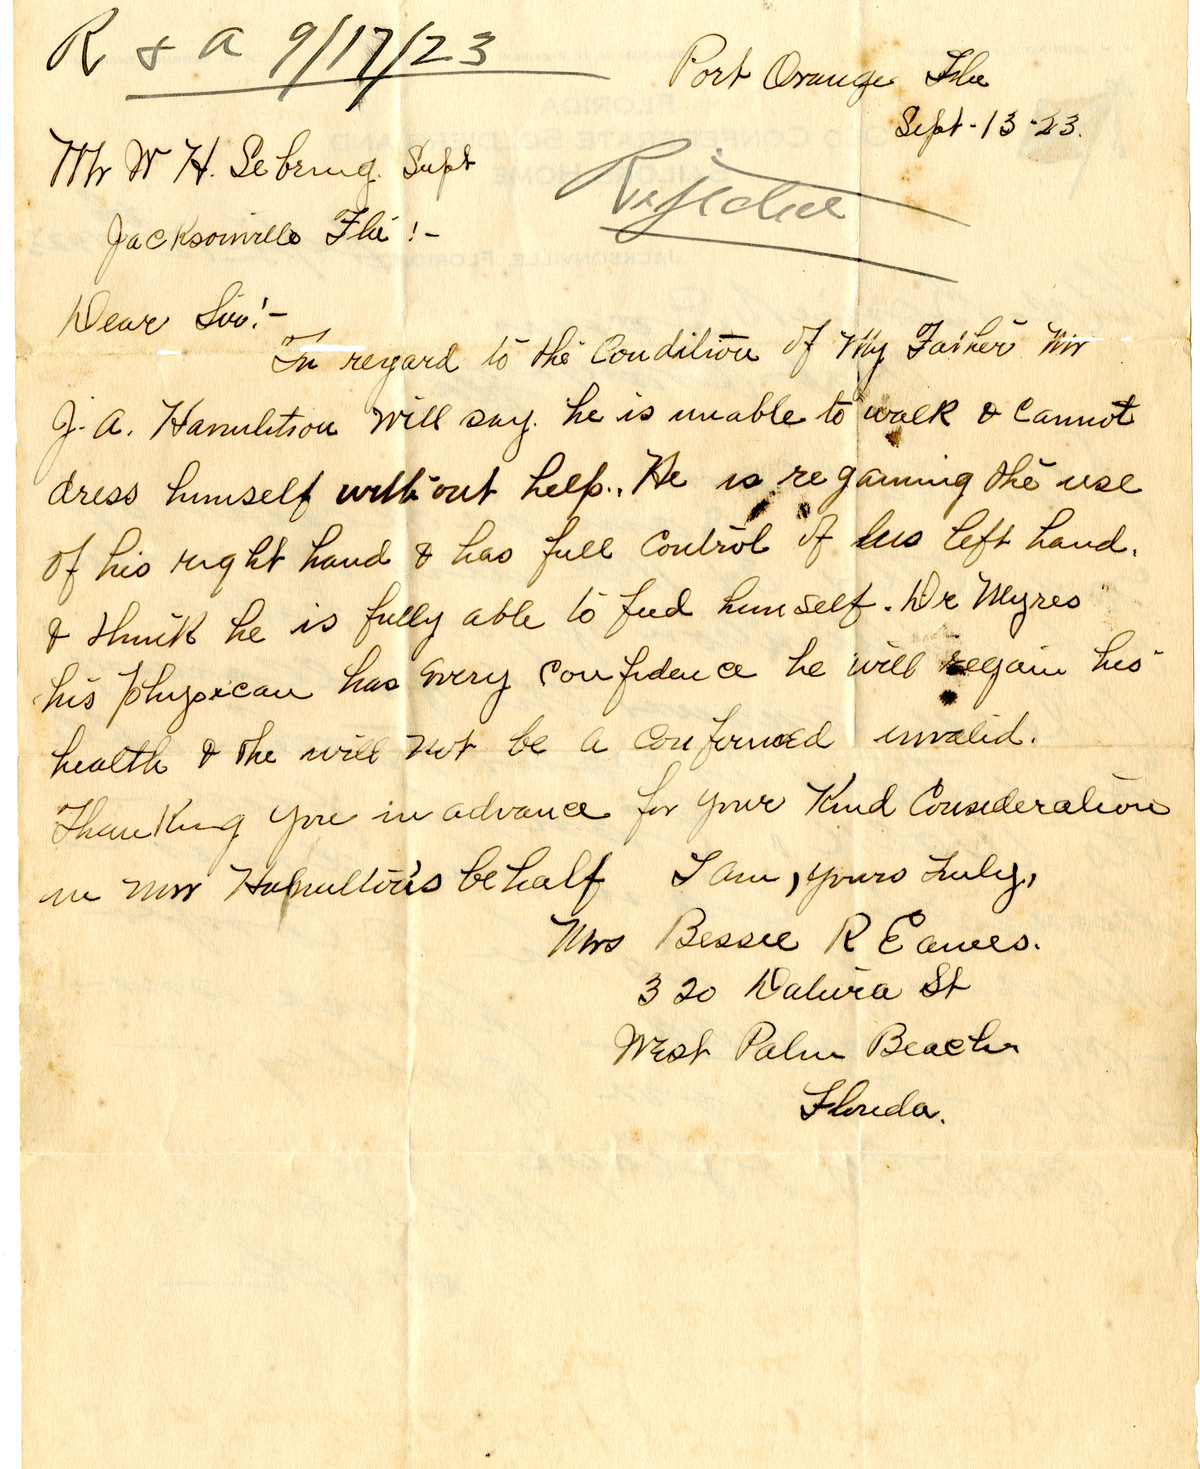 R & A 9/17/23
Port Orange Fla
Sept-13-23.
Mr W H. Sebring. Supt
Rejected
Jacksonville Fla!-
Dear Sir!-
In regard to the Condition of My Father Mr
J. A. Hamilton will say. he is unable to walk & cannot
dress himself without help.. He is regaining the use
of his right hand & has full control of his left hand.
& think he is fully able to feed himself. Dr Myres
his physican has every confidence he will regain his
health & he will not be a confirmed invalid.
Thanking you in advance for your Kind Consideration
in Mr Hamilton's behalf I am, yours truly,
Mrs Bessie R Eames.
320 Datura St
West Palm Beach
Florida.
FLORIDA
OLD CONFEDERATE SOLDIERS AND
SAILORS HOME
JACKSONVILLE, FLORIDA